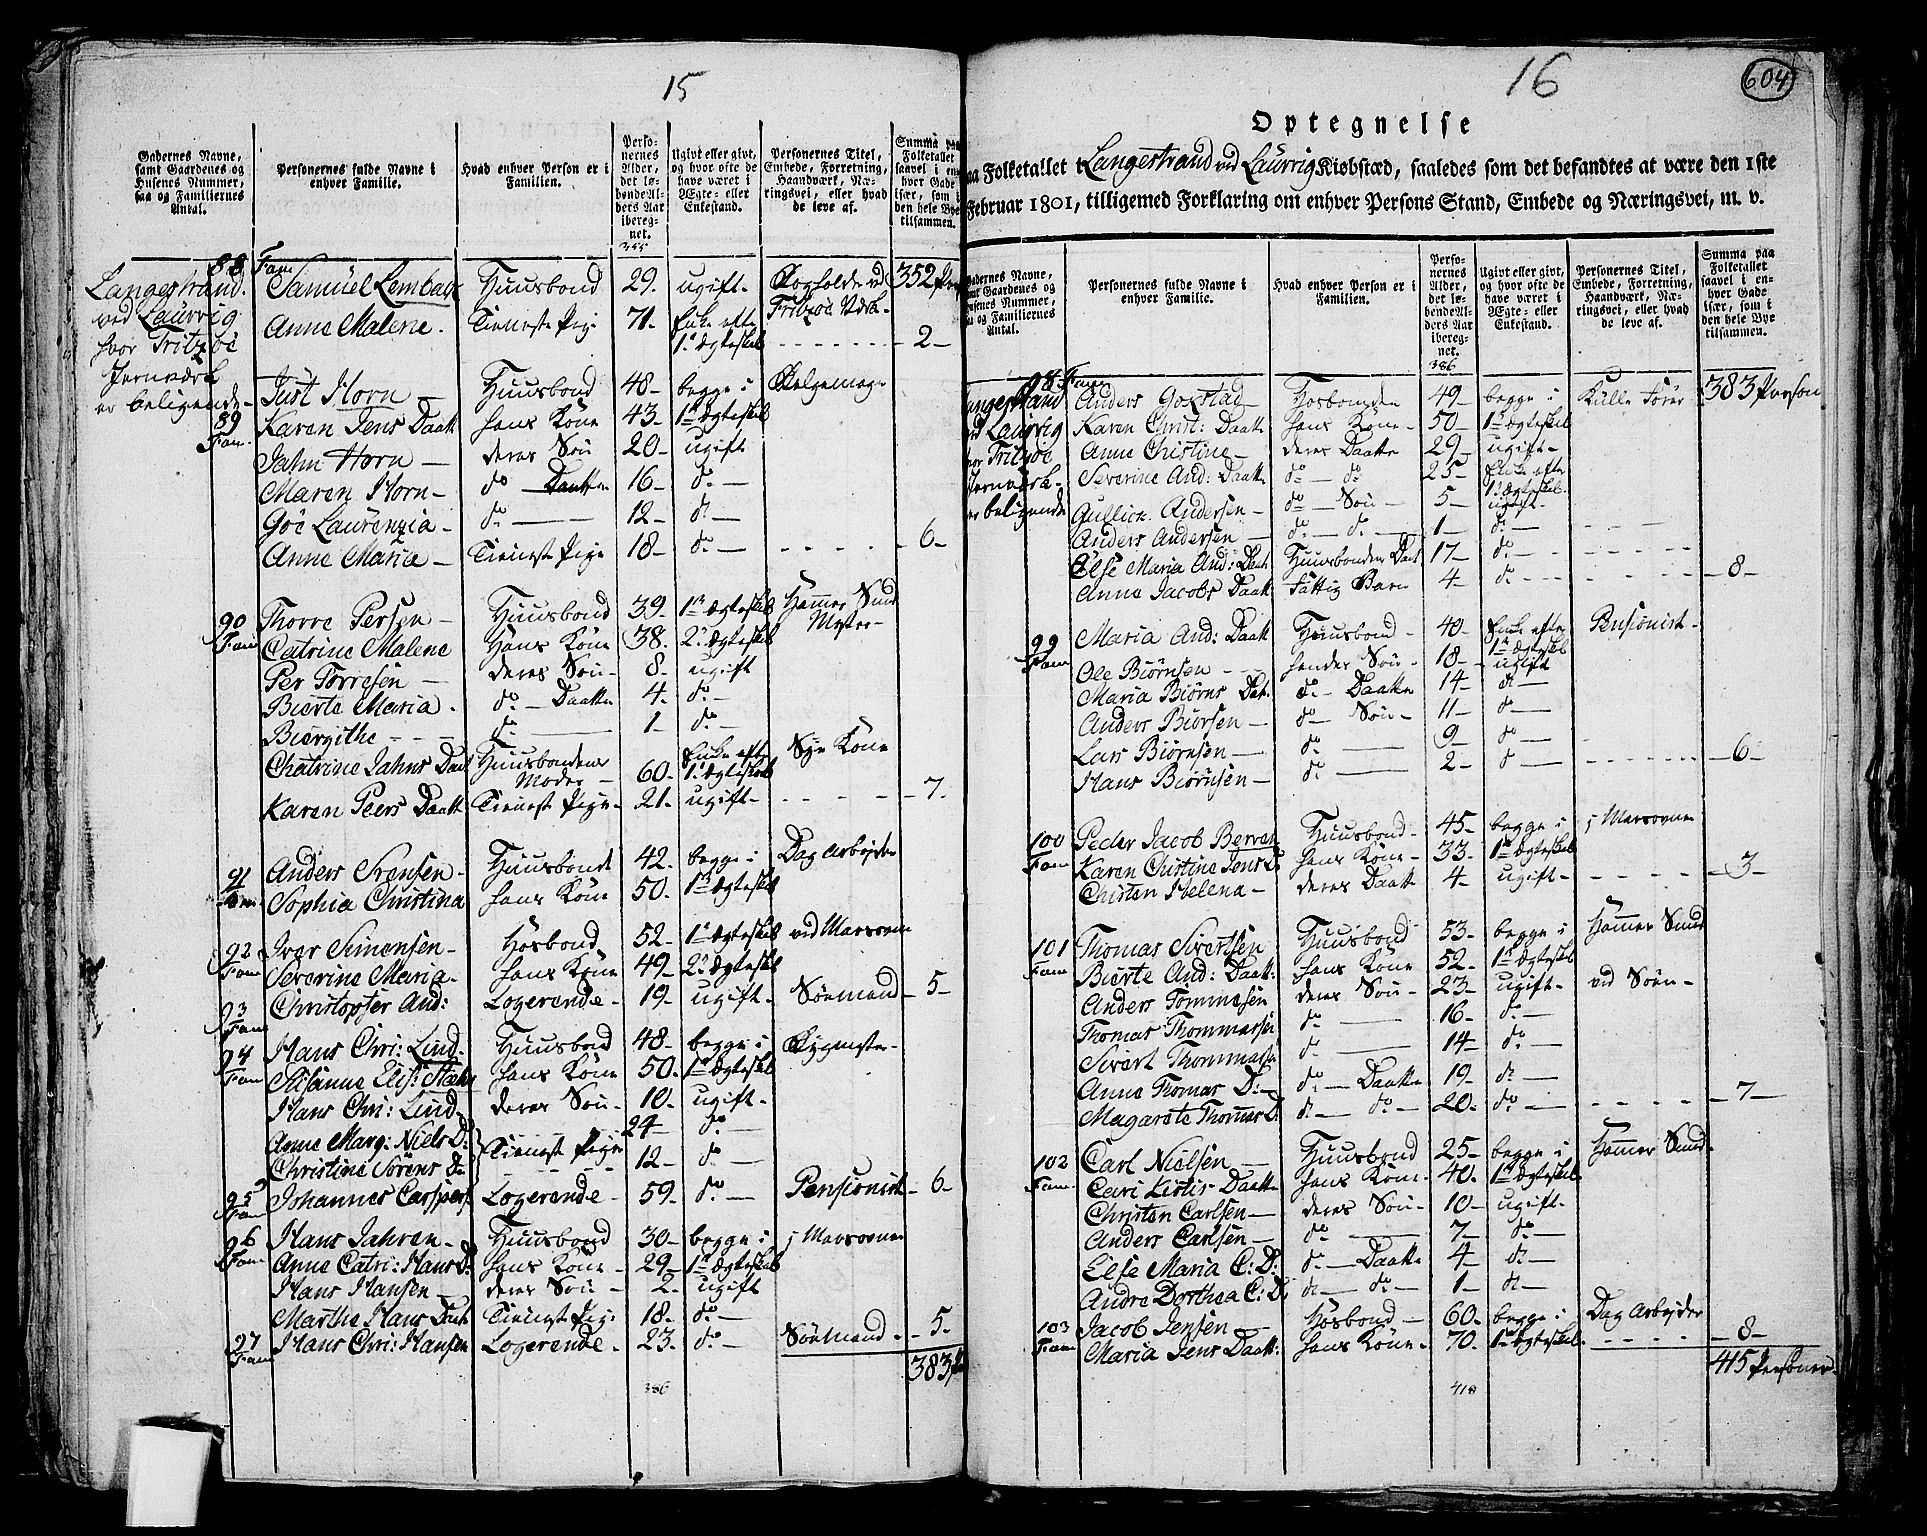 15
Gadernes Navne, samt Gaardenes og Husenes Nummer, saa og Familiernes Antal.
Personernes fulde Navne i enhver Familie.
Hvad enhver Person er i Familien.
Personernes Alder, det løbende Alders Aar iberegnet.
Ugivt eller givt, og hvor ofte de have været i Ægte- eller Enkestand.
Personernes Titel, Embede, Forretning, Haandværk, Næringsvei, eller hvad de leve af.
Summa paa Folketallet saavel i enhver Gade især, som i den hele Bye tilsammen.
355
Langestrand ved Laurvig hvor Fritzöe Jernværk er beligende
88 Fam Samuel Lembach Huusbond 29. ugift. ved Fritzöe Værk 352
Anne Malene. Tieneste Pige 71. Enke efte 1te Ægteskab 2
89 Fam. Just Horn Huusbond 48 begge i
Karen Jens Daatt hans Kone 43 1te Ægteskab
Jahn Horn deres Søn 20 ugift
Maren Horn do Daatte 16 do
Göe Laurenzia do 12 do
Anne Maria Tieneste Pige 18 do 6
90 Fam Thorre Persen Huusbond 39 1te Ægteskab Hammer Smed Mester
Catrine Malene Hans Kone 38. 2de Ægteskab
Per Torresen deres Søn 8 ugift
Bierte Maria do Daatte 4 do
Biergithe do 1 do
Chatrine Jahns Daat Huusbondens Moder 60 Enke efte 1te Ægteskab Sye Kone
Karen Peers Daatt Tieneste Pige 21 ugift 7
91 Fam Anders Srensen Huusbond 42 begge i Dag Arbeyder
Sophia Christina hans Kone 50 1te Ægteskab
92 Fam Iver Simensen Hosbond 52 1te Ægteskab ved Masovne
Severine Maria hans Kone 49 2de Ægteskab
93 Fam Christopher And: Logerende 19 ugift Søemand 5
94 Fam Hans Chri: Lind Huusbond 48 begge i
Susanne Elis: hans Kone 50 1te Ægteskab
Hans Chri: Lind deres Søn 10 ugift
Anne Marg: Niels D: Tieneste Pige 24 do
Christine Sörens D: 12 do
95 Fam Johannes Carspers Logerende 59 do Pensionist 6
96 Fam Hans Jahren Huusbond 30 begge i j Masovne
Anne Catri: Hans D. hans Kone 29 1te Ægteskab
Hans Hansen deres Søn 2 ugift
Marthe Hans Datt Tieneste Pig: 18 do
97 Fam Hans Chri: Hansen Logerende 23 do Søemand 5
383
386
16
604
Optegnelse
paa Folketallet i Langestrand ved Laurvig Kiøbstæd, saaledes som det befandtes at være den 1ste
Februar 1801, tilligemed Forklaring om enhver Persons Stand, Embede og Næringsvei, m. v.
Gadernes Navne, samt Gaardenes og Husenes Nummer, saa og Familiernes Antal.
Personernes fulde Navne i enhver Familie.
Hvad enhver Person er i Familien.
Personernes Alder, det løbende Alders Aar iberegnet.
Ugivt eller givt, og hvor ofte de have været i Ægte- eller Enkestand.
Personernes Titel, Embede, Forretning, Haandværk, Næringsvei, eller hvad de leve af.
Summa paa Folketallet saavel i enhver Gade især, som i den hele Bye tilsammen.
386
Langestrand ved Laurvig hvor Fritzöe Jernværk er beligende
98 Fam Anders Gokstad Hosbonden 49 begge i Kulle Fører 383 Person
Karen Christ: Daatt hans Kone 50 1te Ægteskab
Anne Christine deres Daatte 29 ugift
Severine And: Daatt do do 25 Enke efte 1te Ægteskab
Gullick Andersen do Søn 5 ugift
Anders Andersen do do 1 do
Else Maria And: Datt Huusbonden Daat 17 do
Anne Jacobs Daatt fattig Barn 4 do 8
99 Fam Maria And: Daatt Huusbond 40 Enke efte 1te Ægteskab Pensionist
Ole Biörnsen hendes Søn 18 ugift
Maria Biörns Dat. do Daatte 14 do
Anders Biörsen do Søn 11 do
Lars Biörnsen do 9 do
Hans Biörnsen do 2 do 6
100 Fam Peder Jacob Berven Huusbond 45 begge i j Masovne
Karen Christine Jens D: hans Kone 33 1te Ægteskab
Christen Helena deres Daatt 4 ugift 3
101 Fam Thomas Sivertsen Huusbond 53 begge i Hammer Smed
Bierte And: Daatt: hans Kone 52 1te Ægteskab
Anders Tommesen deres Søn 23 ugift ved Søen
Thomas Thommassen do 16 do
Sivert Thommassen do 14 do
Anne Thomas D: do Daatte 19 do
Magarete Thomas D: do do 20 do 7
102 Fam Carl Nielsen Huusbond 25 begge i Hammer Smed
Cari Kistis Daatt hans Kone 40 1te Ægteskab
Christen Carlsen deres Søn 10 ugift
Anders Carlsen do 7 do
Else Maria C: D: do Daatte 4 do
Andre Dorthea C: D: do do 1 do
103 Fam Jacob Jensen Hosbond 60 begge i Dag Arbeyder
Maria Jens Daatt: hans Kone 70 1te Ægteskab 8
415 Personer
418